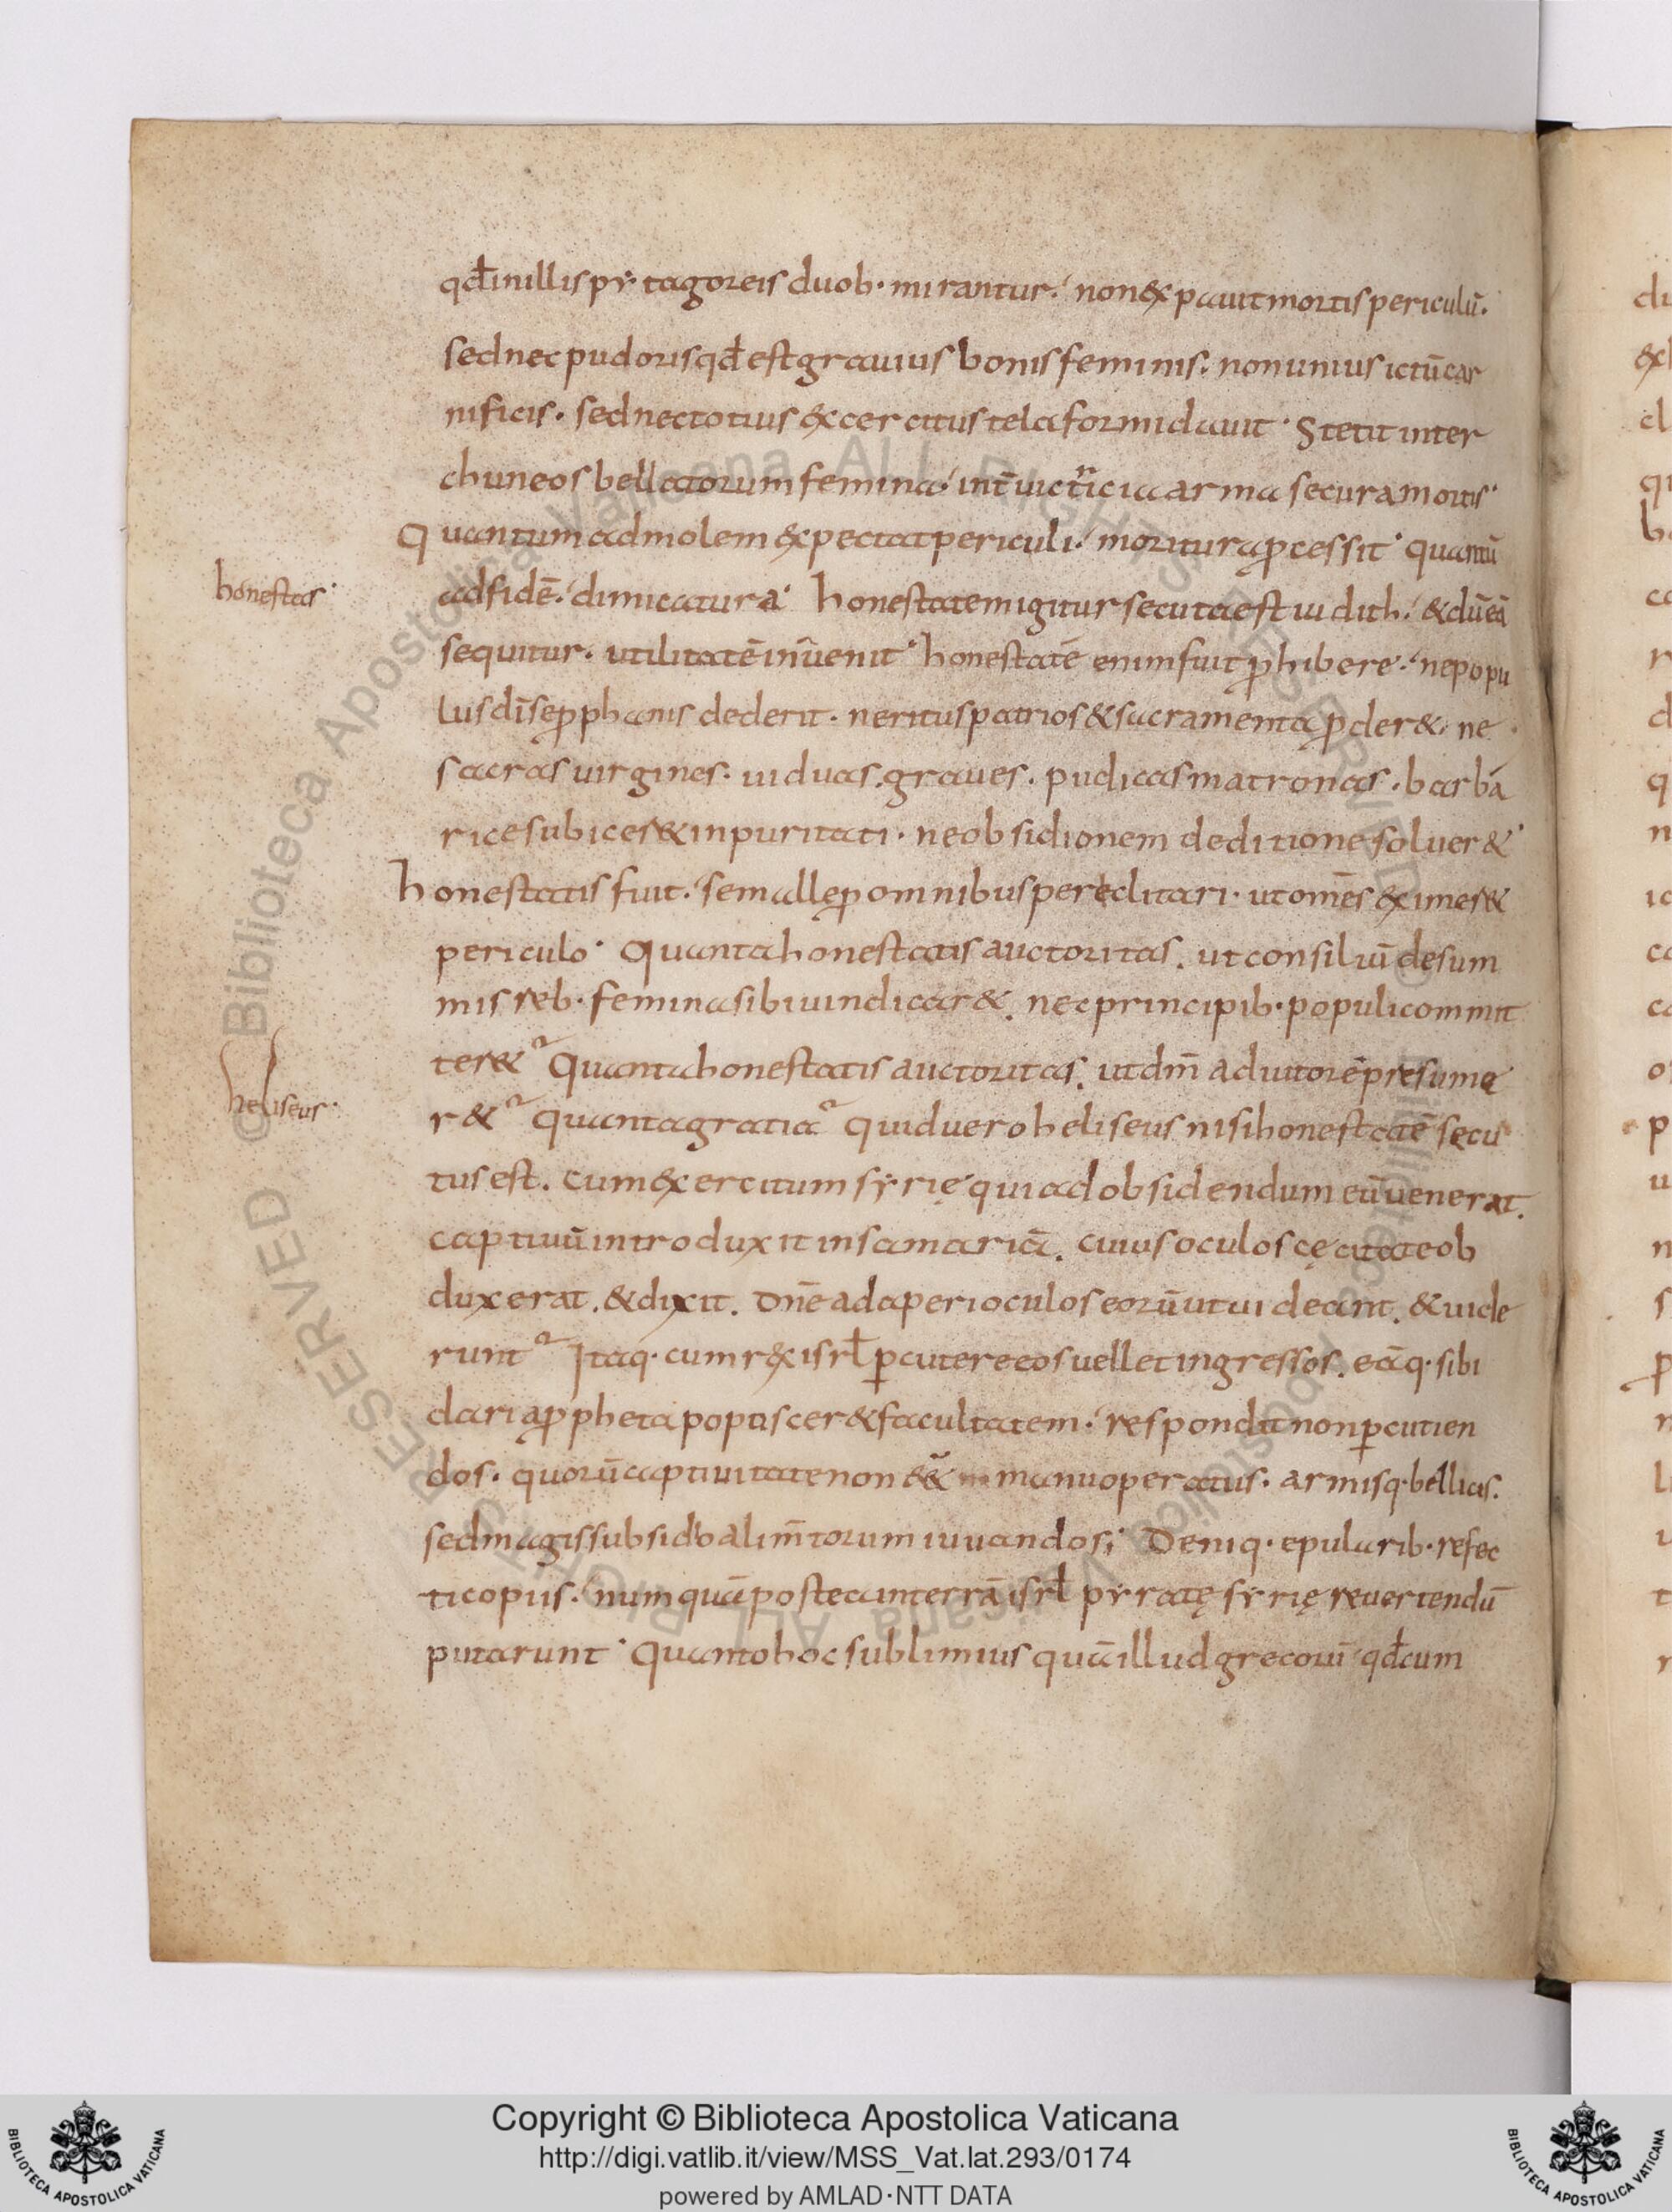 qđ in illis pytagoreis duob· mirantur· non expauit mortis periculū·
sed nec pudoris qđ est grauius bonis feminis· non unius ictū car
nificis· sed nec totius excercitus tela formidauit· Stetit inter
chuneos bellatorum femina· int̄ uictricia arma secura mortis·
Quantum ad molem expectat periculi· moritura ꝓcessit· quantū
honestas·
ad fidē· dimicatura· honestatem igitur secuta est iudith· & dū eā
sequitur· utilitatē inuenit· honestatē enim fuit ꝓhibere· ne popu
lus dī se ꝓphanis dederit· ne ritus patrios & sacramenta ꝓder&· ne
sacras uirgines· uiduas· graues· pudicas matronas· barba
rice subices& inpuritati· ne obsidionem deditione soluer&·
honestatis fuit· se malle ꝓ omnibus periclitari· ut om̄es eximer&
periculo· Quanta honestatis auctoritas· ut consiluī de sum
mis reb· femina sibi uindicar&· nec principib· populi commit
ter& Quanta honestatis auctoritas· ut dm̄ adiutorē presume
heliseus·
r& quanta gratia quid uero heliseus nisi honestatē secu
tus est· cum exercitum syrię qui ad obsidendum eū uenerat·
captiuū introduxit in samariā· cuius oculos cęcitate ob
duxerat· & dixit· Dn̄e adaperi oculos eorū ut uideant· & uide
runt Itaq· cum rex isrl̄ ꝑcutere eos uellet ingressos· eāq· sibi
dari a ꝓpheta poposcer& facultatem· respondit non ꝑcutien
dos· quorū captiuitate non manu operatus· armisq· bellicis·
sed magis subsidio alim̄torum iuuandos; Deniq· epularib· refec
ti copiis· numquā postea in terrā isrl̄ pyratę syrię reuertendū
putarunt· Quanto hoc sublimius quā illud grecorū qđ cum
Copyright © Biblioteca Apostolica Vaticana
http://digi.vatlib.it/view/MSS_Vat.lat.293/0174
powered by AMLAD·NTT DATA